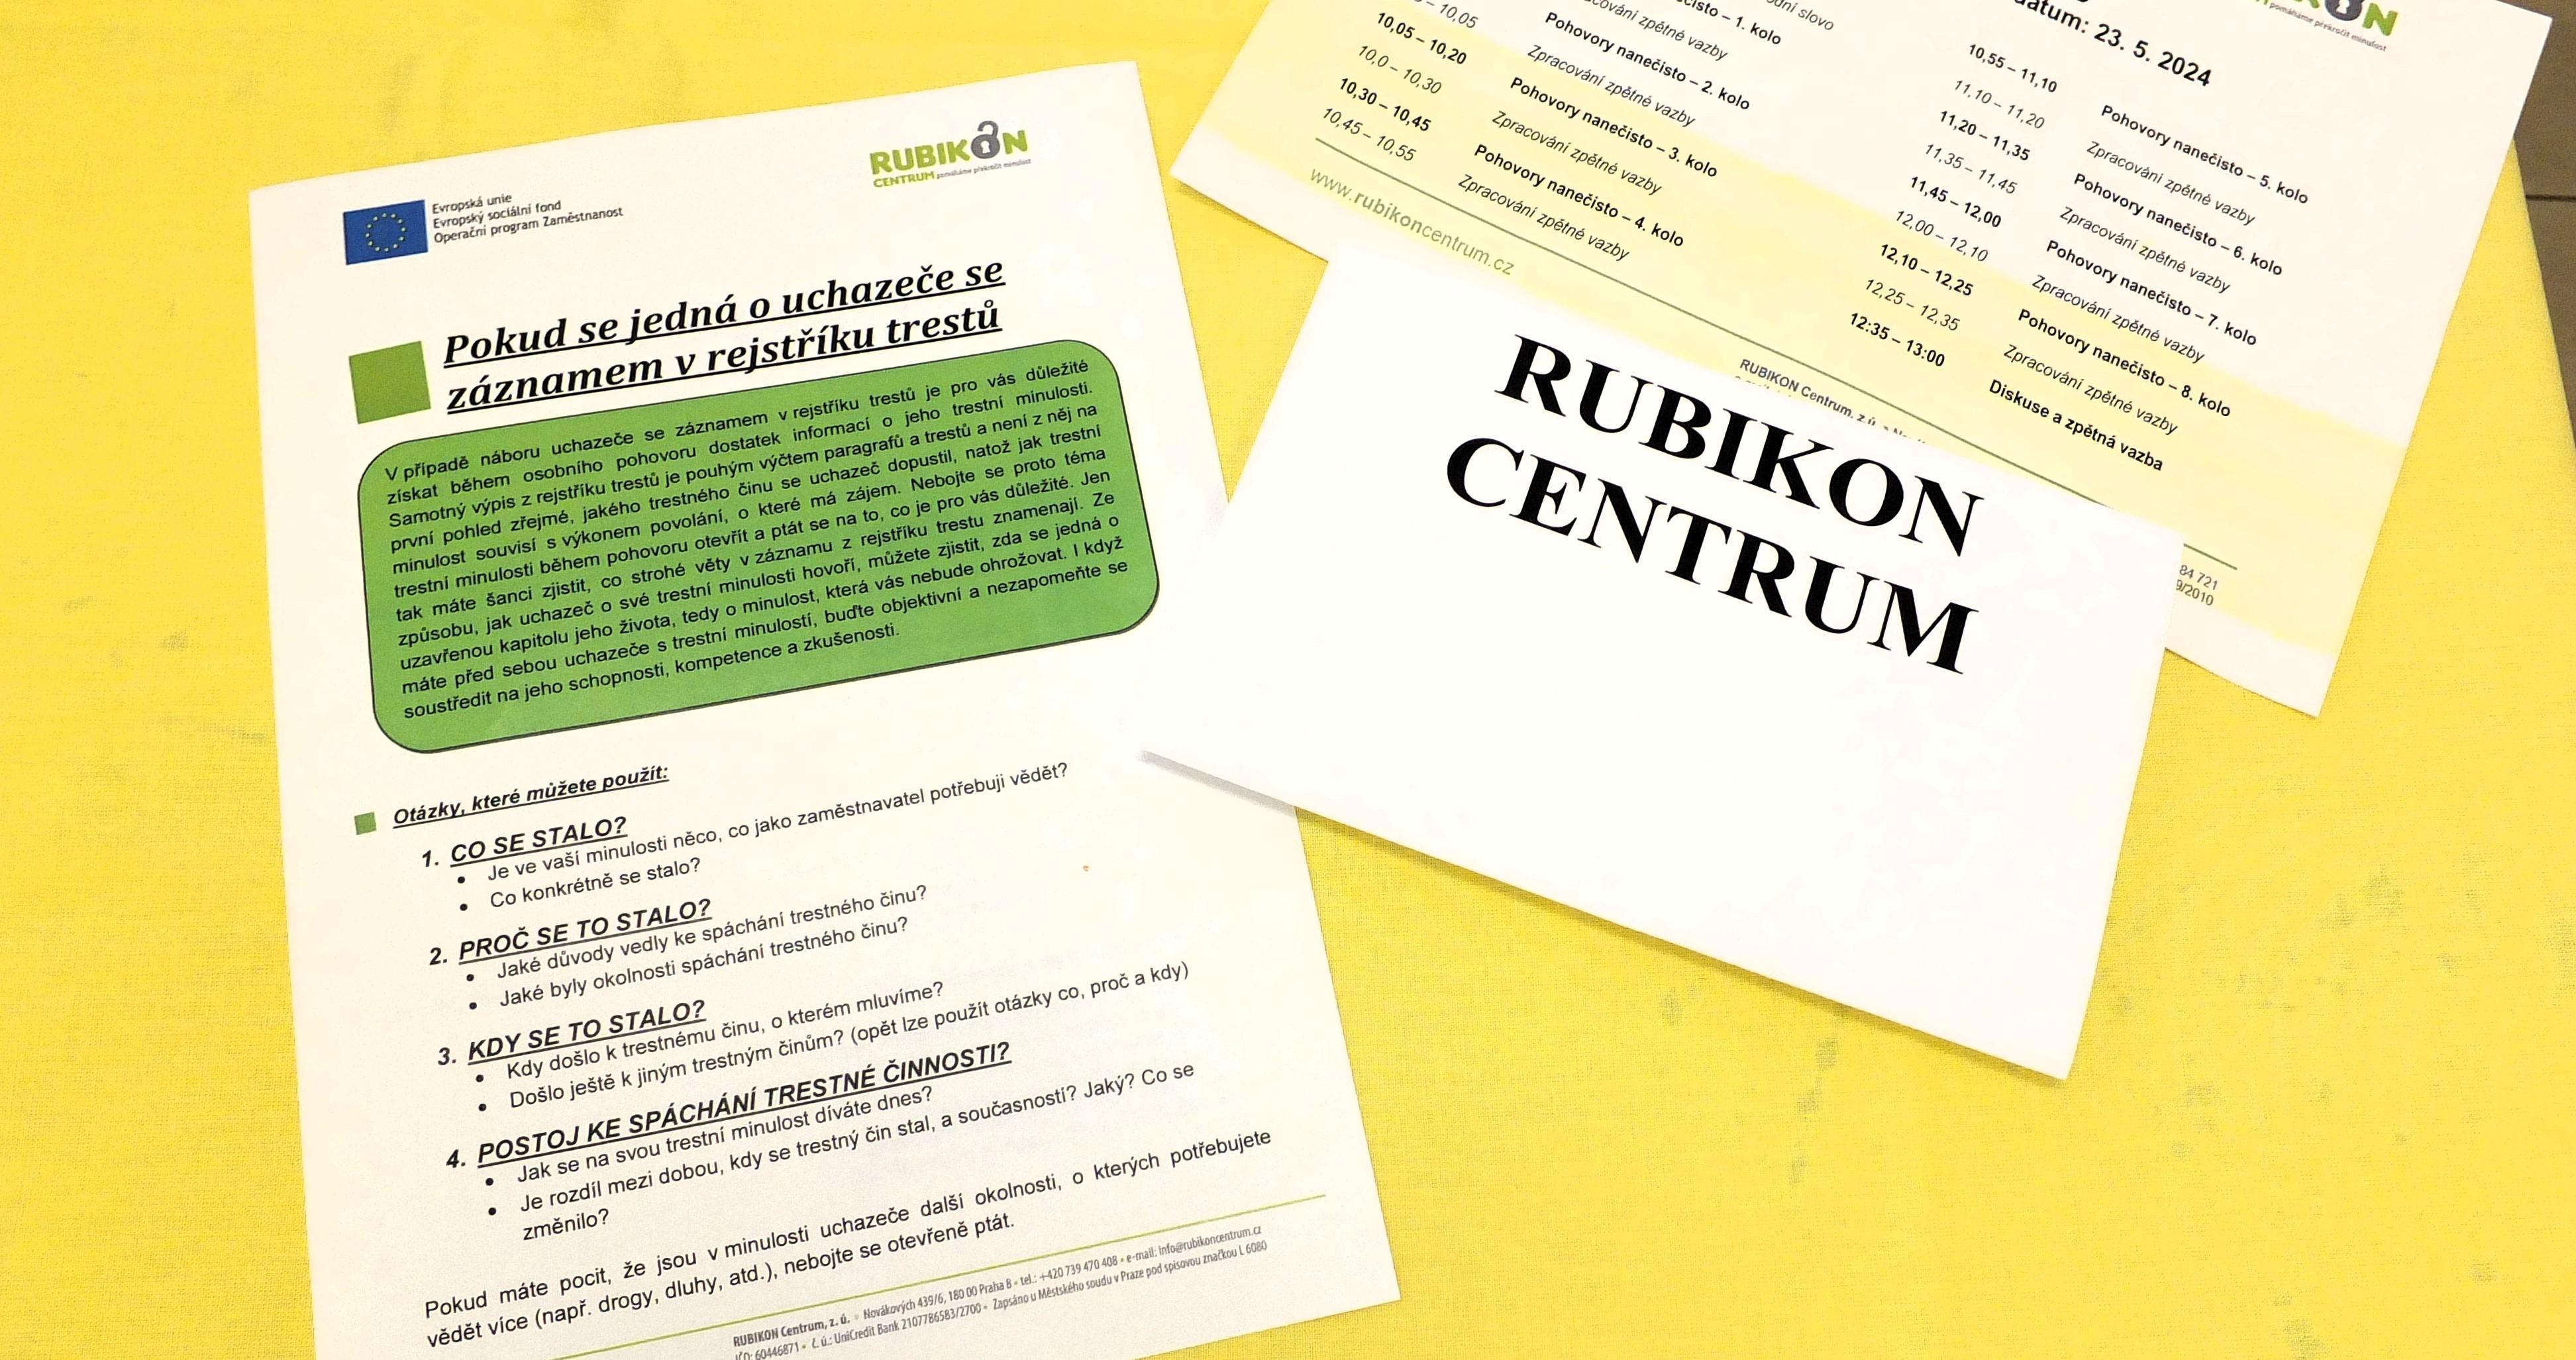 Evropská unie
Evropský sociální fond
Operační program Zaměstnanost
RUBIKON
CENTRUM pomáháme překročit minulost
Pokud se jedná o uchazeče se
záznamem v rejstříku trestů
V případě náboru uchazeče se záznamem v rejstříku trestů je pro vás důležité
získat během osobního pohovoru dostatek informací o jeho trestní minulosti.
Samotný výpis z rejstříku trestů je pouhým výčtem paragrafů a trestů a není z něj na
první pohled zřejmé, jakého trestného činu se uchazeč dopustil, natož jak trestní
minulost souvisí s výkonem povolání, o které má zájem. Nebojte se proto téma
trestní minulosti během pohovoru otevřít a ptát se na to, co je pro vás důležité. Jen
tak máte šanci zjistit, co strohé věty v záznamu z rejstříku trestu znamenají. Ze
způsobu, jak uchazeč o své trestní minulosti hovoří, můžete zjistit, zda se jedná o
uzavřenou kapitolu jeho života, tedy o minulost, která vás nebude ohrožovat. I když
máte před sebou uchazeče s trestní minulostí, buďte objektivní a nezapomeňte se
soustředit na jeho schopnosti, kompetence a zkušenosti.
Otázky, které můžete použít:
1. CO SE STALO?
• Je ve vaší minulosti něco, co jako zaměstnavatel potřebuji vědět?
• Co konkrétně se stalo?
2. PROČ SE TO STALO?
• Jaké důvody vedly ke spáchání trestného činu?
• Jaké byly okolnosti spáchání trestného činu?
3. KDY SE TO STALO?
• Kdy došlo k trestnému činu, o kterém mluvíme?
• Došlo ještě k jiným trestným činům? (opět lze použít otázky co, proč a kdy)
4. POSTOJ KE SPÁCHÁNÍ TRESTNÉ ČINNOSTI?
• Jak se na svou trestní minulost díváte dnes?
• Je rozdíl mezi dobou, kdy se trestný čin stal, a současností? Jaký? Co se
změnilo?
Pokud máte pocit, že jsou v minulosti uchazeče další okolnosti, o kterých potřebujete
vědět více (např. drogy, dluhy, atd.), nebojte se otevřeně ptát.
RUBIKON Centrum, z. ú. » Novákových 439/6, 180 00 Praha 8 • tel.: +420 739 470 408 • e-mail: info@rubikoncentrum.cz
IČO: 60446871 • č. ú.: UniCredit Bank 2107786583/2700 • Zapsáno u Městského soudu v Praze pod spisovou značkou L 6080
slovo
– 1. kolo
– 10,05 zpětné vazby
10,05 – 10,20 Pohovory nanečisto – 2. kolo
10,0 – 10,30 Zpracování zpětné vazby
10,30 – 10,45 Pohovory nanečisto – 3. kolo
10,45 – 10,55 Zpracování zpětné vazby
Pohovory nanečisto – 4. kolo
Zpracování zpětné vazby
www.rubikoncentrum.cz
pomáháme překročit minulost
datum: 23. 5. 2024
10,55 – 11,10 Pohovory nanečisto – 5. kolo
11.10 – 11,20 Zpracování zpětné vazby
11,20 – 11,35 Pohovory nanečisto – 6. kolo
11,35 – 11,45 Zpracování zpětné vazby
11,45 – 12,00 Pohovory nanečisto – 7. kolo
12,00 – 12,10 Zpracování zpětné vazby
12,10 – 12,25 Pohovory nanečisto – 8. kolo
12,25 – 12,35 Zpracování zpětné vazby
12:35 – 13:00 Diskuse a zpětná vazba
RUBIKON Centrum, z.ú.
84 721
9/2010
RUBIKON
CENTRUM